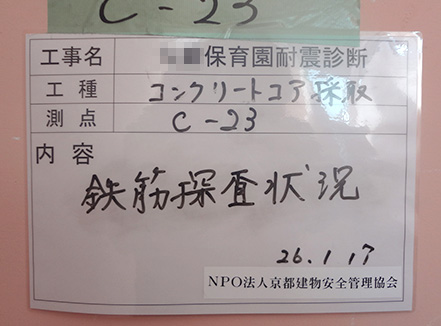 C-23
工事名 保育園耐震診断
工種 コンクリートコア採取
測点 C-23
内容
鉄筋探査状況
26.1.17
NPO法人京都建物安全管理協会